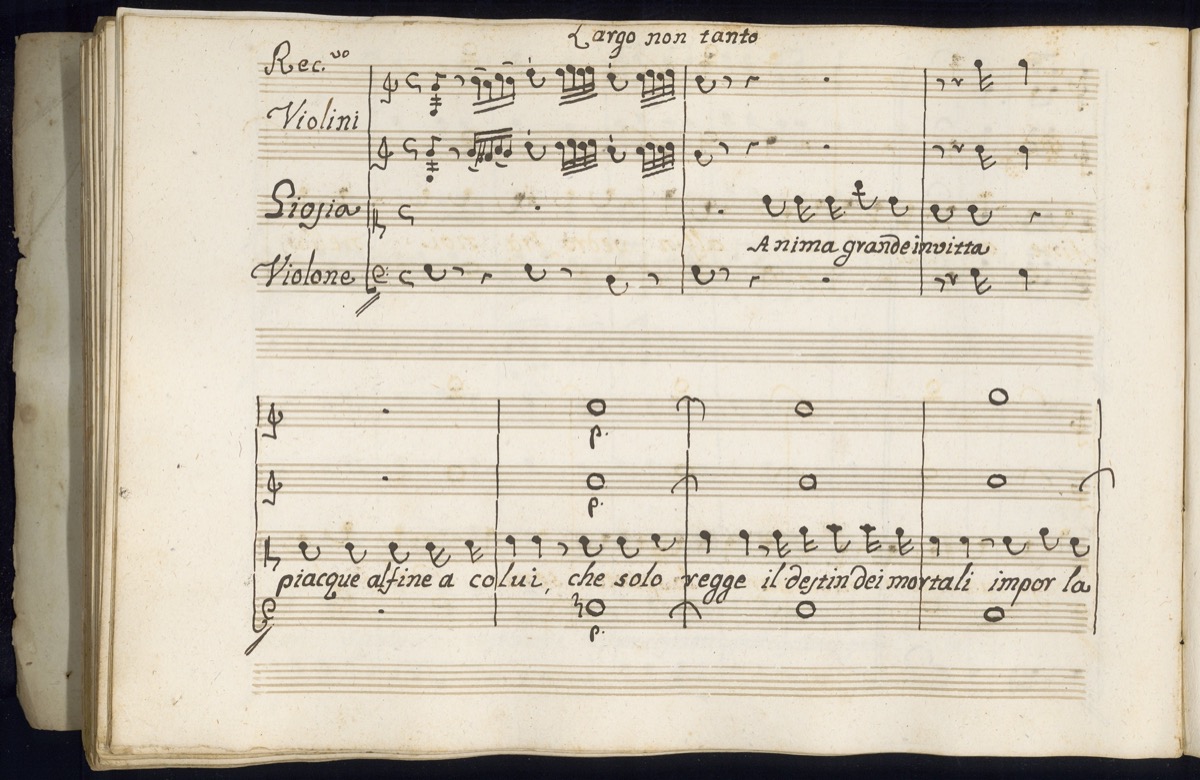 Largo non tanto
Rec.vo
Violini
Siosia
Anima grande invitta
Violone
p.
p.
piacque alfine a colui, che solo regge il destin dei mortali impor la
p.